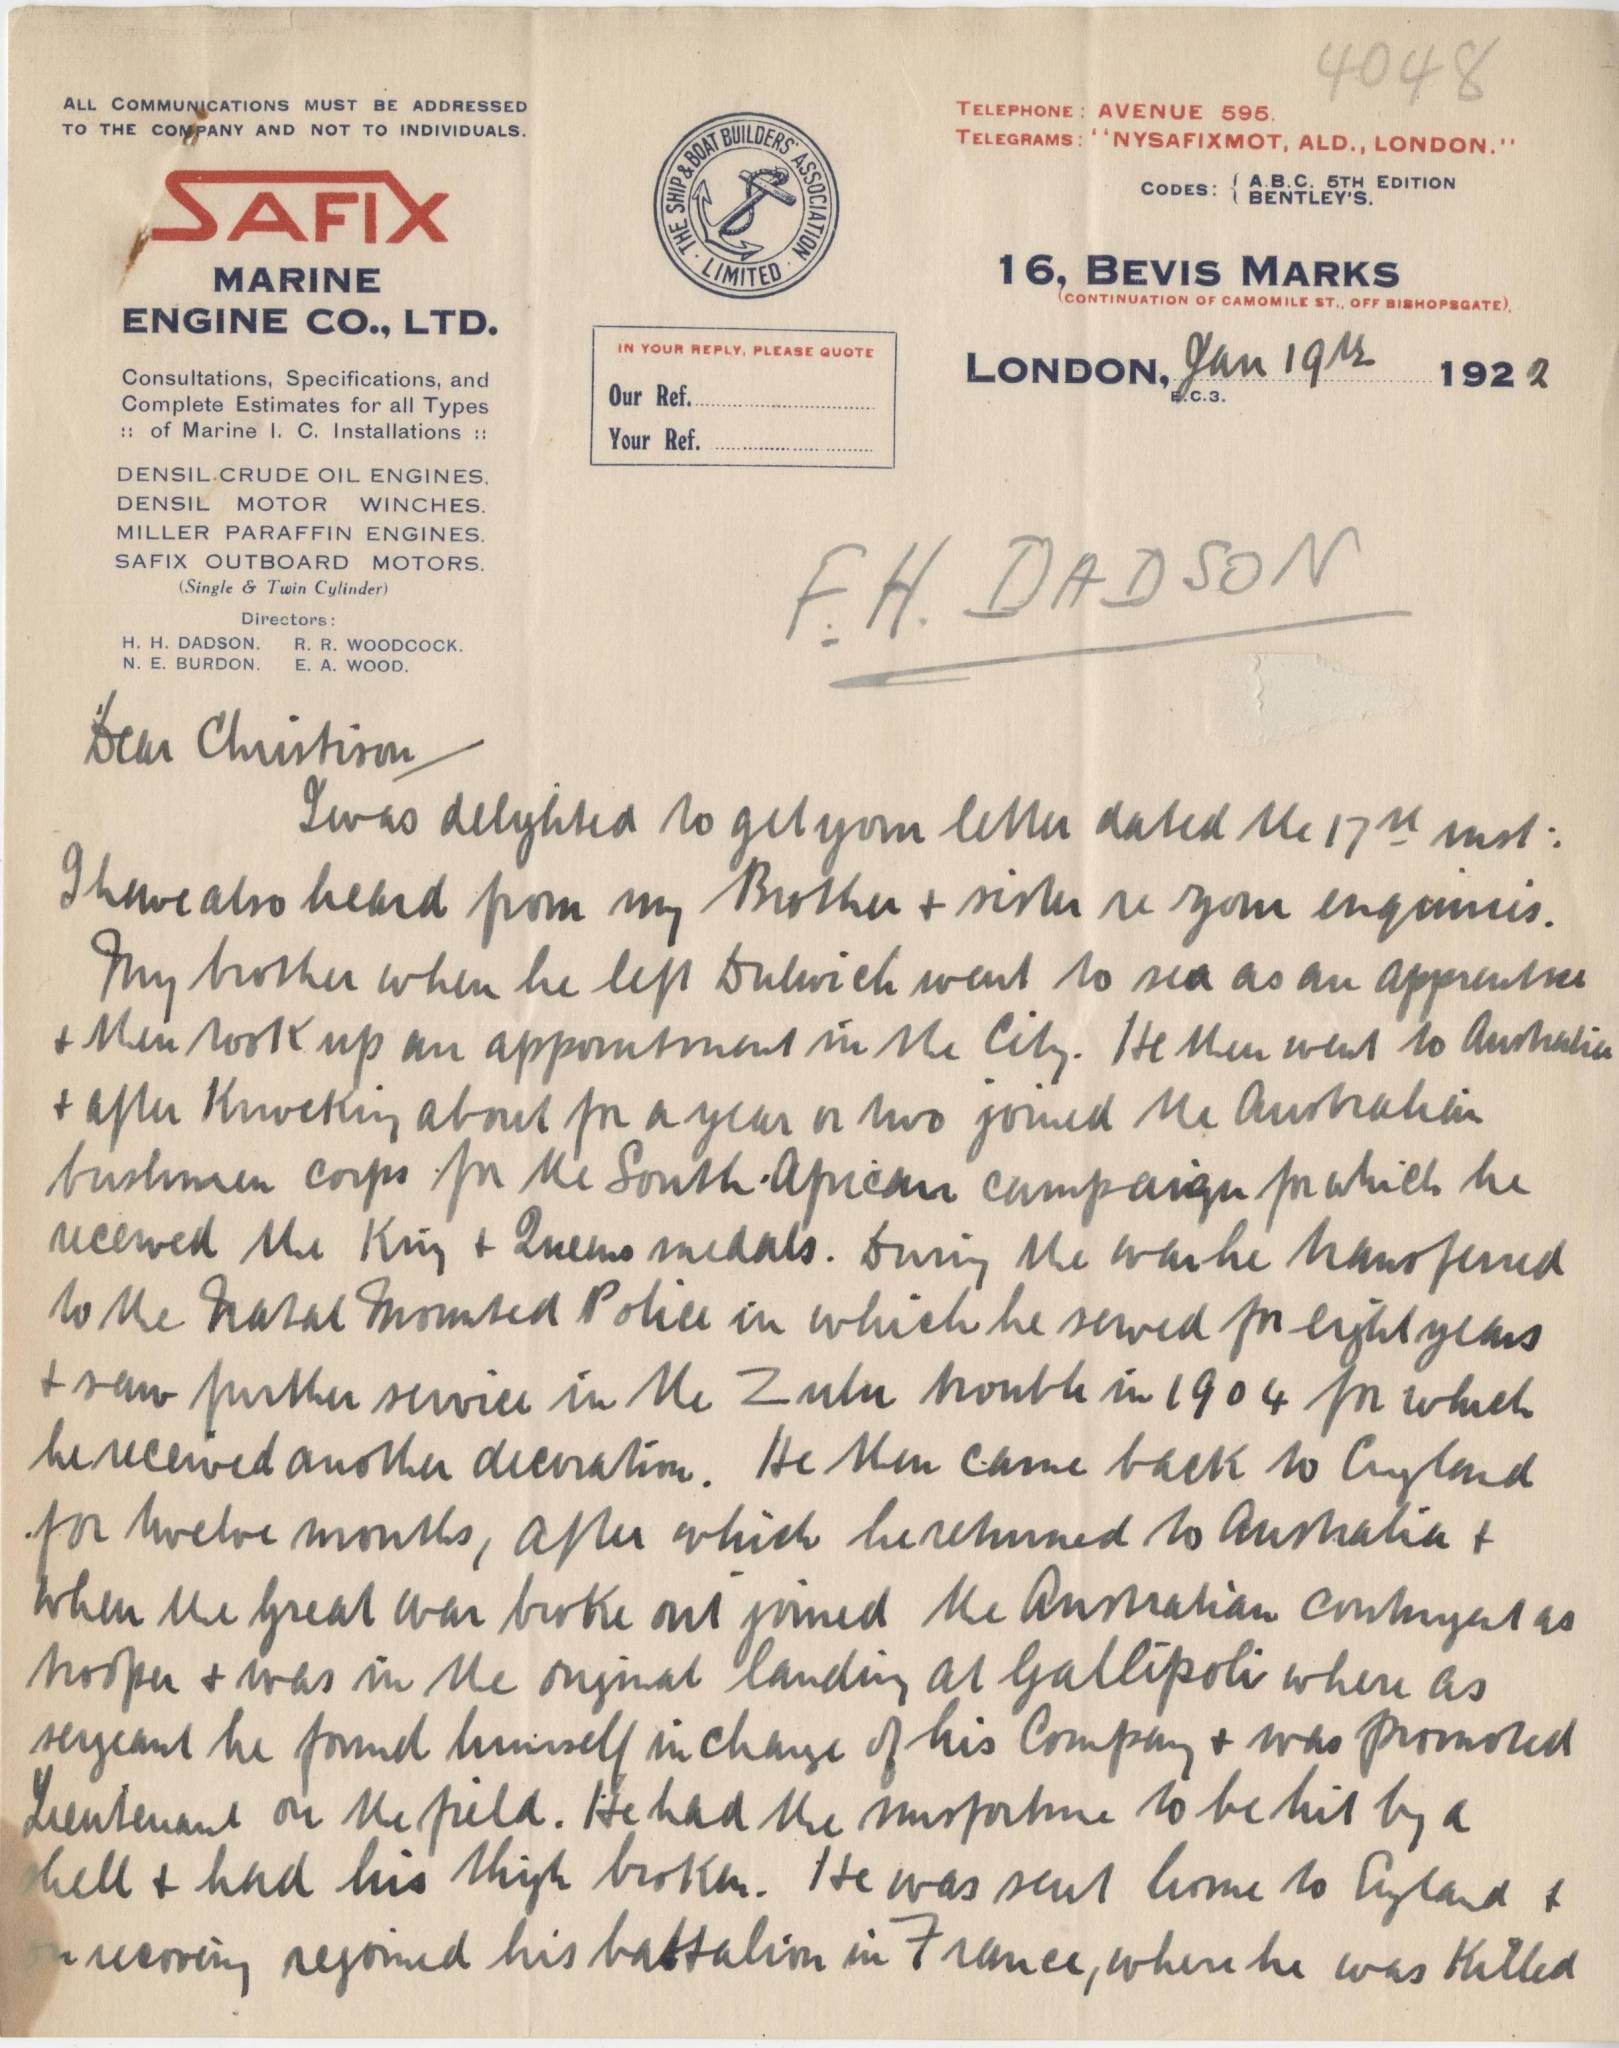 4048
ALL COMMUNICATIONS MUST BE ADDRESSED
TO THE COMPANY AND NOT TO INDIVIDUALS.
SAFIX
MARINE
ENGINE CO., LTD.
Consultations, Specifications, and
Complete Estimates for all Types
:: of Marine I. C. Installations ::
DENSIL CRUDE OIL ENGINES.
DENSIL MOTOR WINCHES.
MILLER PARAFFIN ENGINES.
SAFIX OUTBOARD MOTORS.
(Single & Twin Cylinder)
Directors:
H. H. DADSON. R. R. WOODCOCK.
N. E. BURDON. E. A. WOOD.
THE SHIP & BOAT BUILDERS' ASSOCIATION
· LIMITED ·
IN YOUR REPLY, PLEASE QUOTE
Our Ref.
Your Ref.
TELEPHONE: AVENUE 595.
TELEGRAMS: "NYSAFIXMOT, ALD., LONDON."
CODES: { A.B.C. 5TH EDITION
BENTLEY'S.
16, BEVIS MARKS
(CONTINUATION OF CAMOMILE ST., OFF BISHOPSGATE).
LONDON, Jan 19th 1922
E.C.3.
F. H. DADSON
Dear Christison
I was delighted to get your letter dated the 17th inst:
I have also heard from my Brother + sister re your enquiries.
My brother when he left Dulwich went to sea as an apprentice
+ then took up an appointment in the City. He then went to Australia
+ after Knocking about for a year or two joined the Australian
bushmen corps for the South African campaign for which he
received the King + Queens medals. During the war he transferred
to the Natal Mounted Police in which he served for eight years
+ saw further service in the Zulu trouble in 1904 for which
he received another decoration. He then came back to England
for twelve months, after which he returned to Australia +
when the Great War broke out joined the Australian contingent as
trooper + was in the original landing at Gallipoli where as
sergeant he found himself in charge of his Company + was promoted
Lieutenant on the field. He had the misfortune to be hit by a
shell + had his thigh broken. He was sent home to England +
on recoving rejoined his battalion in France, where he was Killed